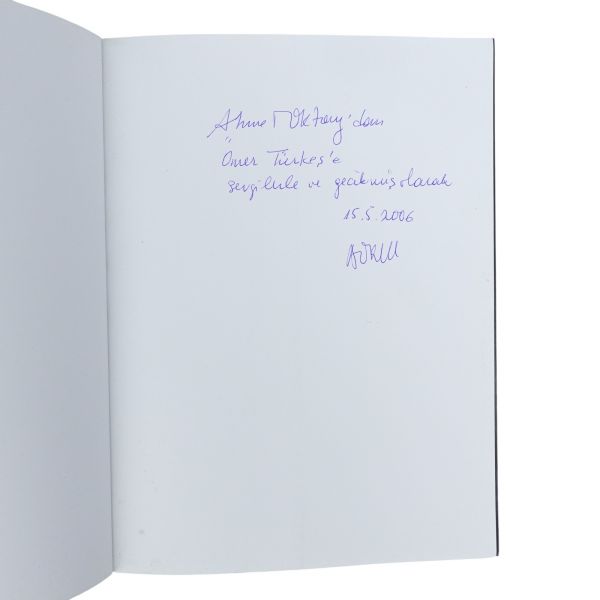 Ahmet Oktay'dan
Ömer Türkeş'e
sevgilerle ve gecikmiş olarak
15.5.2006